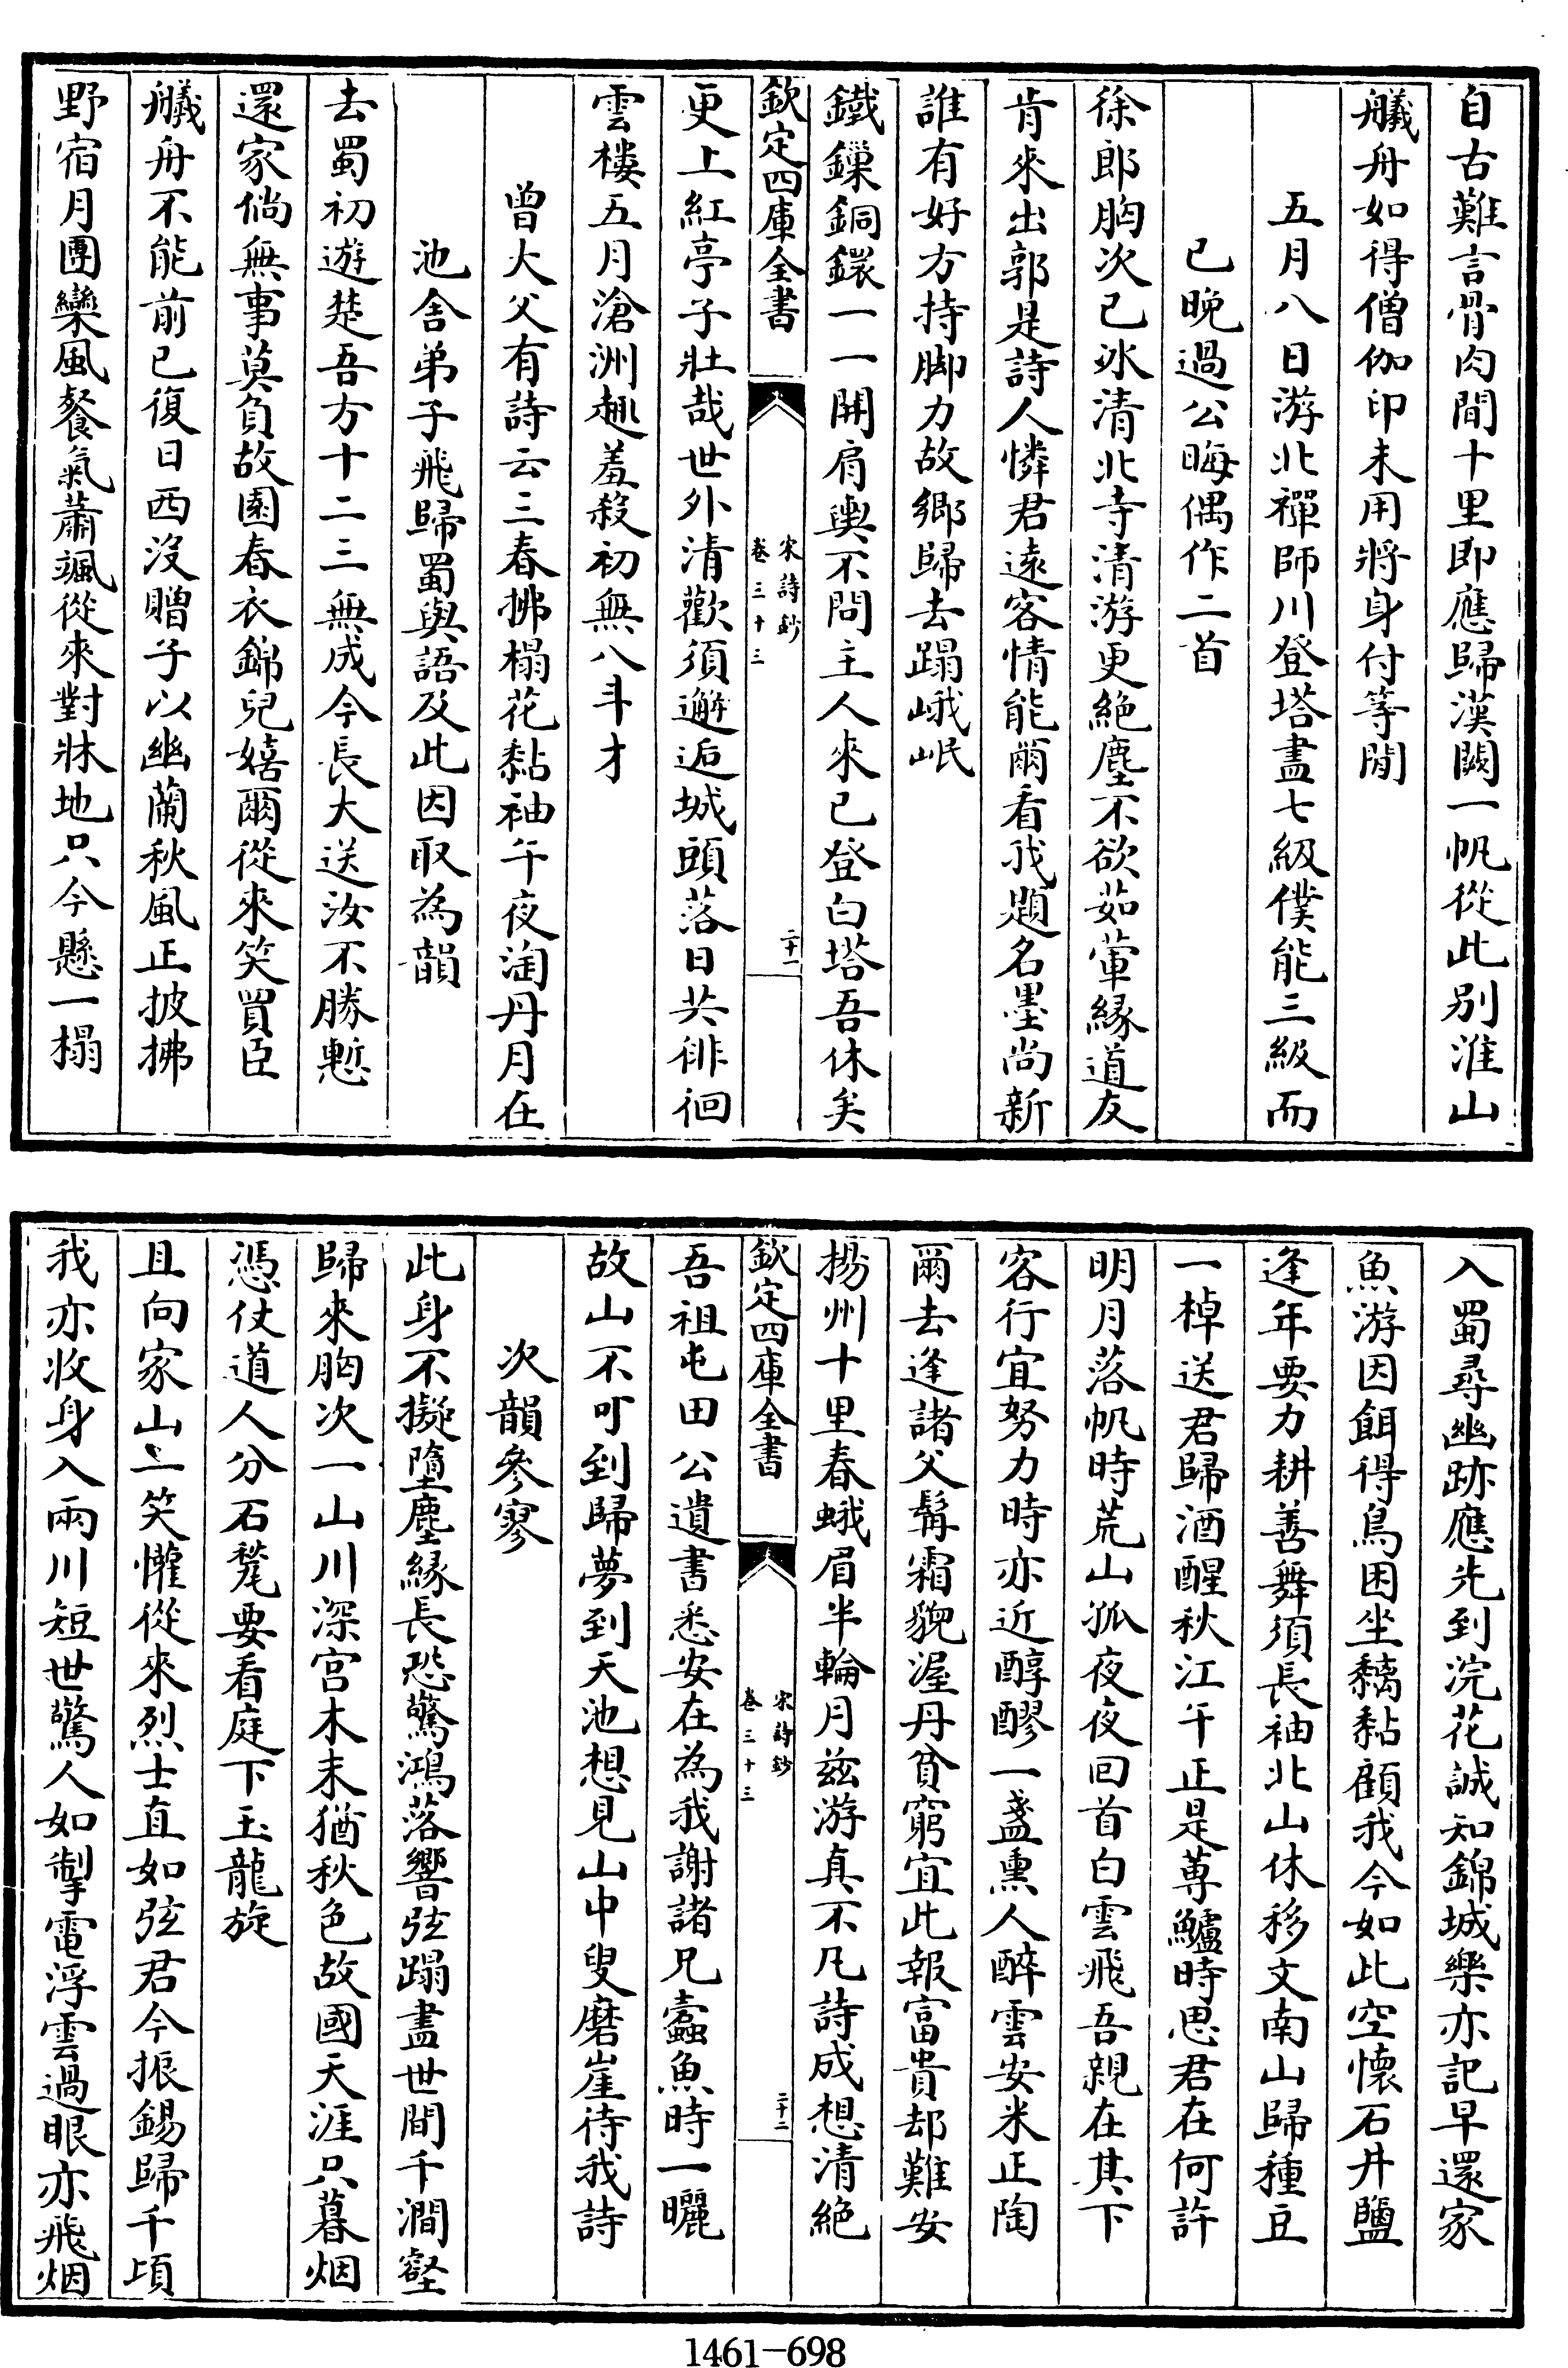 自古難言骨肉間十里即應歸漢闕一帆從此别淮山
艤舟如得僧伽印未用將身付等閒
五月八日游北禪師川登塔盡七級僕能三級而
已晚過公晦偶作二首
徐郎胸次已冰清北寺清游更絶塵不欲茹葷緣道友
肯來出郭是詩人憐君遠客情能爾看我題名墨尚新
誰有好方持脚力故鄉歸去蹋峨岷
鐵鏁銅鐶一一開肩輿不問主人來已登白塔吾休矣
欽定四庫全書
宋詩鈔
卷三十三
二十一
更上紅亭子壯哉世外清歡須邂逅城頭落日共徘徊
雲樓五月滄洲趣羞殺初無八斗才
曾大父有詩云三春拂榻花黏袖午夜淘丹月在
池舍弟子飛歸蜀與語及此因取為韻
去蜀初遊楚吾方十二三無成今長大送汝不勝慙
還家倘無事莫負故園春衣錦兒嬉爾從來笑買臣
艤舟不能前已復日西沒贈子以幽蘭秋風正披拂
野宿月團欒風餐氣蕭颯從來對牀地只今懸一榻
入蜀尋幽跡應先到浣花誠知錦城樂亦記早還家
魚游因餌得鳥困坐黐黏顧我今如此空懷石井鹽
逢年要力耕善舞須長袖北山休移文南山歸種豆
一棹送君歸酒醒秋江午正是蓴鱸時思君在何許
明月落帆時荒山孤夜夜回首白雲飛吾親在其下
客行宜努力時亦近醇醪一盞熏人醉雲安米正陶
爾去逢諸父鬢霜貌渥丹貧窮宜此報富貴却難安
揚州十里春蛾眉半輪月兹游真不凡詩成想清絶
欽定四庫全書
宋詩鈔
卷三十三
二十二
吾祖屯田公遺書悉安在為我謝諸兄蠧魚時一曬
故山不可到歸夢到天池想見山中叟磨崖待我詩
次韻參寥
此身不擬墮塵緣長恐驚鴻落響弦蹋盡世間千澗壑
歸來胸次一山川深宫木末猶秋色故國天涯只暮烟
憑仗道人分石髦要看庭下玉龍旋
且向家山一笑懽從來烈士直如弦君今振錫歸千頃
我亦收身入兩川短世驚人如掣電浮雲過眼亦飛烟
1461-698